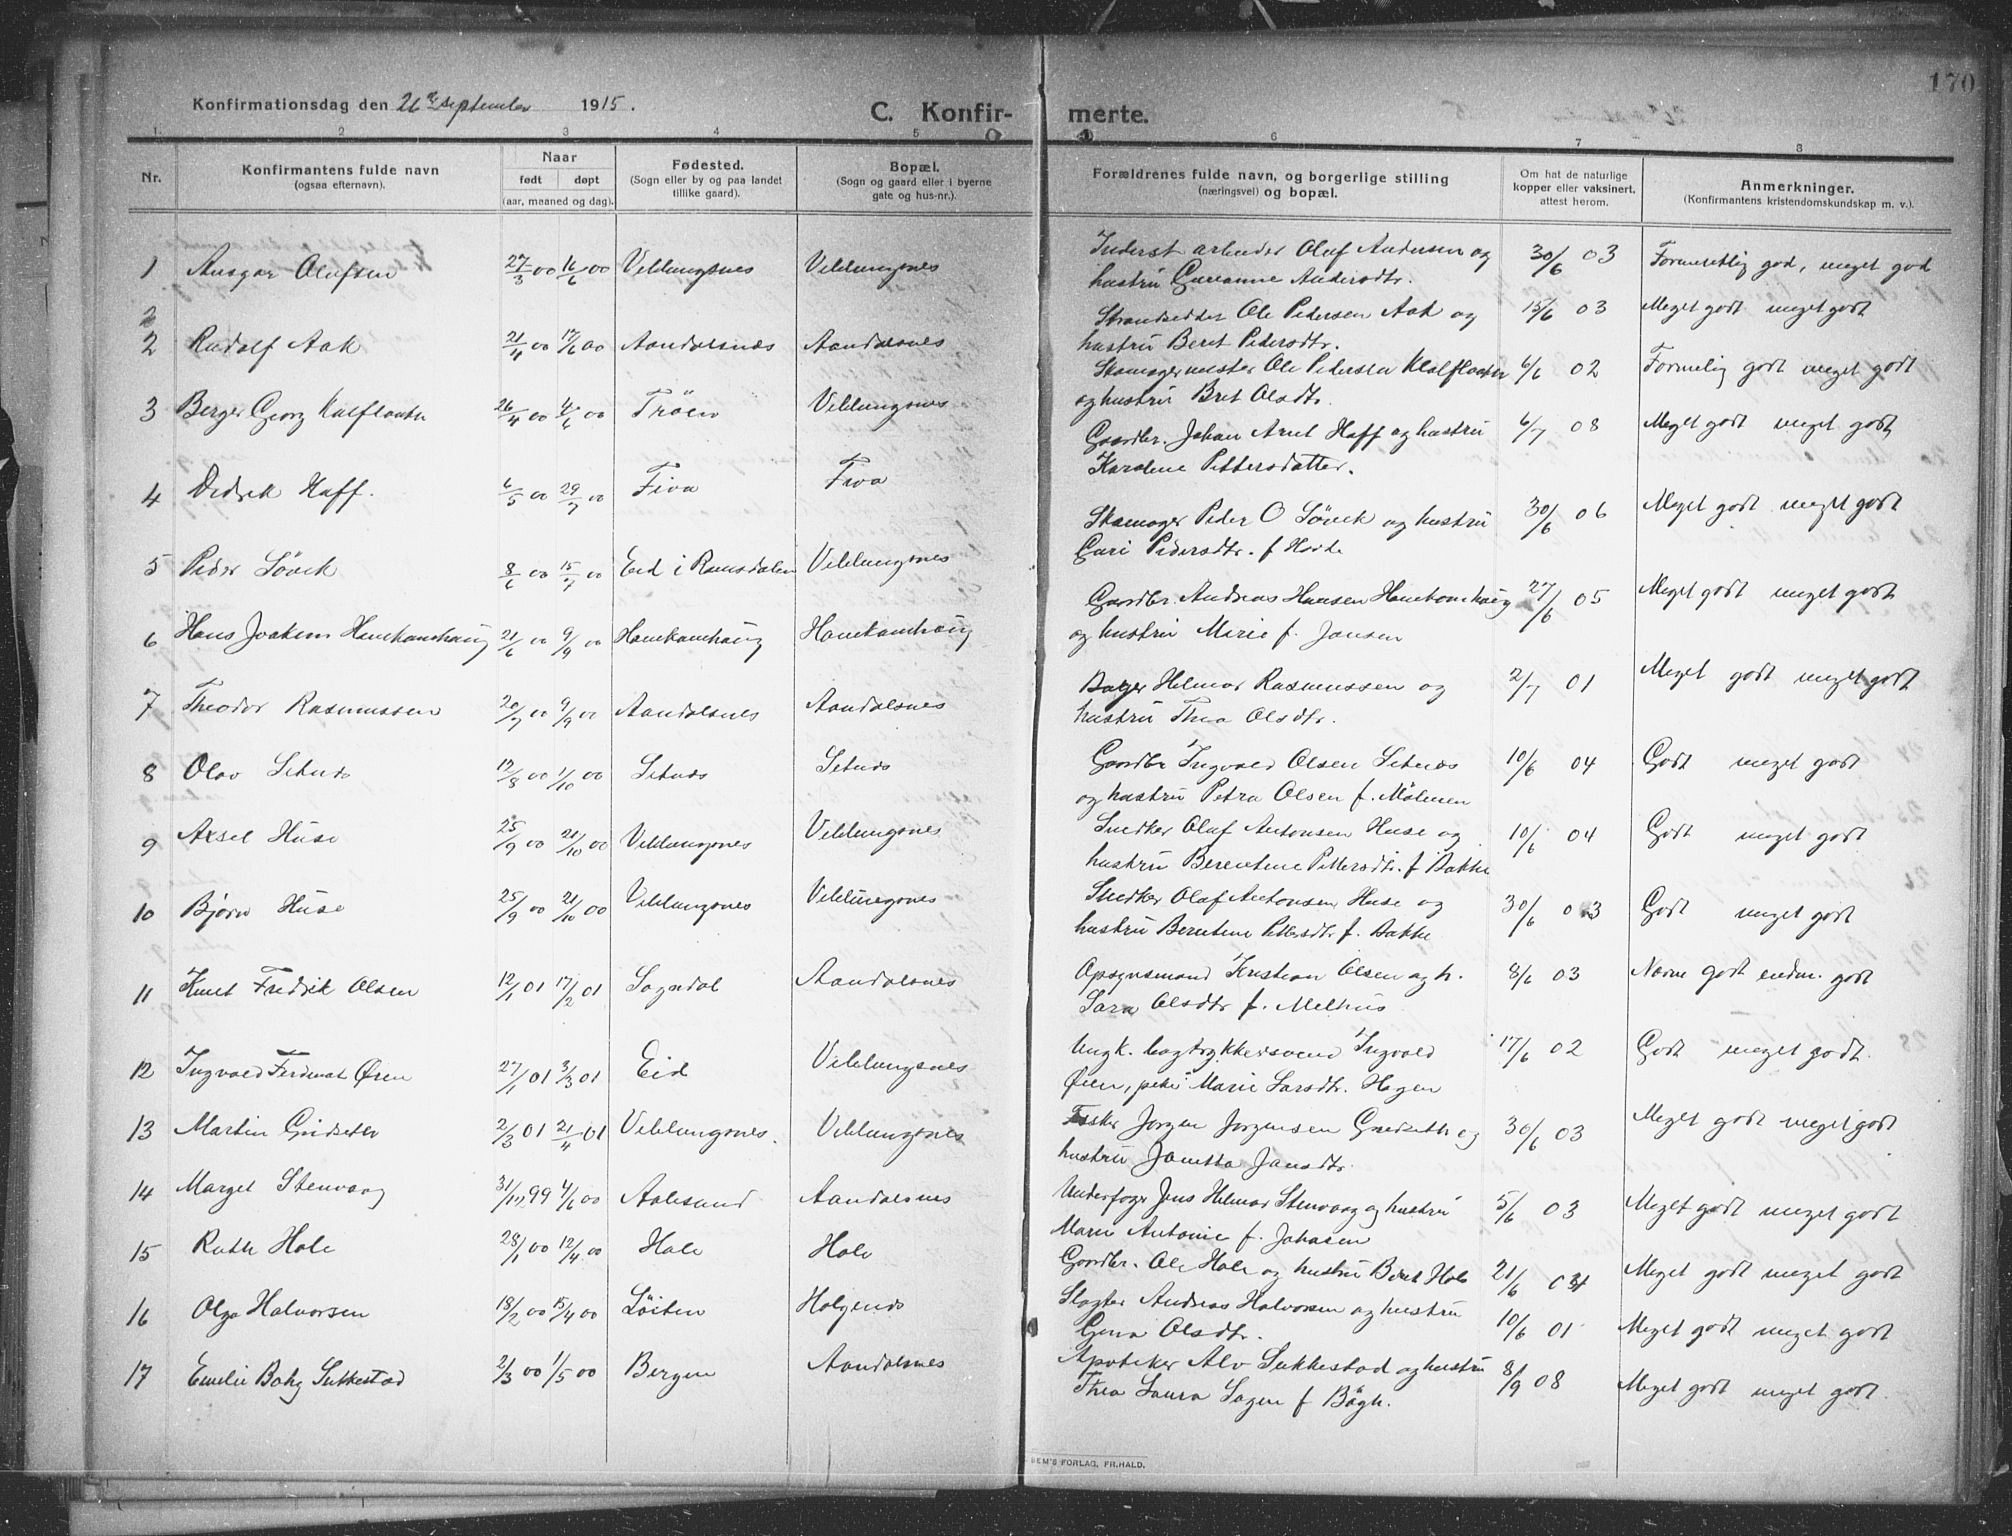 170
Konfirmationsdag den 26de september 1915.
C. Konfir- merte.
1. 2 3 4 5 6 7 8
Nr.
Konfirmantens fulde navn
(ogsaa efternavn).
Naar
født døpt
(aar, maaned og dag).
Fødested.
(Sogn eller by og paa landet
tillike gaard).
Bopæl.
(Sogn og gaard eller i byerne
gate og hus-nr.).
Forældrenes fulde navn, og borgerlige stilling
(næringsvei) og bopæl.
Om hat de naturlige
kopper eller vaksinert,
attest herom.
Anmerkninger.
(Konfirmantens kristendomskundskap m. v.).
1 Ansgar Olufsen 27/3 00 16/6 00 Veblungsnes Veblungsnes Inderst arbeider Oluf Andersen og 30/6 03 god, meget god
hustru Andersdtr.
2
2 Rudolf Aak 21/4 00 17/6 00 Aandalsnæs Aandalsnes Strandsidder Ole Pedersen Aak og 15/6 03 Meget godt meget godt
hustru Beret Pedersdtr.
3 Berger Georg Kalfloatn 26/4 00 4/6 00 Trøen Veblungsnes Skomagermester Ole Pedersen 6/6 02 Formelig godt meget godt
og hustru Bret Olsdtr.
4 Dedrik Haff. 6/5 00 29/7 00 Fiva Fiva Gaardbr. Johan Arnt Haff og hustru 6/7 08 Meget godt meget godt
Karoline Pettersdatter.
5 Peder Løvik 8/6 00 15/7 00 Eid i Romsdalen Veblungsnes Skomager Peder O Løvik og hustru 30/6 06 Meget godt meget godt
Guri Pedersdtr. f Hovde
6 Hans Joakim Hanekamhaug 21/6 00 9/9 00 Hanekamhaug Hanekamhaug Gaardbr. Andreas Hansen Hanekamhaug 27/6 05 Meget godt meget godt
og hustru Marie f. Jansen
7 Theodor Rasmussen 20/7 00 9/9 00 Aandalsnes Aandalsnes Bager Helmar Rasmussen og 2/7 01 Meget godt meget godt
hustru Thea Olsdtr.
8 Olav Setnes 17/8 00 1/10 00 Setnes Setnes Gaardbr Ingvald Olsen Setnæs 10/6 04 Godt meget godt
og hustru Petra Olsen f. Mölmen
9 Axsel Huse 25/9 00 21/10 00 Veblungsnes Veblungsnes Snedker Oluf Antonsen Huse og 10/6 04 Godt meget godt
hustru Berentine Pettersdtr. f Bakke
10 Bjørn Huse 25/9 00 21/10 00 Veblungsnes Veblungsnes Snedker Olaf Antonsen Huse og 30/6 03 Godt meget godt
hustru Berntine Pettersdtr f. Bakke
11 Knut Fredrik Olsen 12/1 01 17/2 01 Sogndal Aandalsnes Opsynsmand Kristian Olsen og h. 8/6 03 godt godt
Sara Olsdtr f. Melhus
12 Ingvald Ferdinat Øien 27/1 01 3/3 01 Eid Veblungsnes Ungk. bogtrykkersvend Ingvald 17/6 02 Godt meget godt.
Øien, pike Marie Larsdtr. Hegen
13 Martin Gridsetlv 2/3 01 21/4 01 Veblungsnes. Veblungsnes Fisker Jørgen Jørgensen og 30/6 03 Meget godt meget godt
hustru Janetta Jansdtr.
14 Marget Stenvaag 31/12 99 4/6 00 Aalesund Aandalsnes Underfoget Jens Helmar Stenvaag og hustru 5/6 03 Meget godt meget godt
Marie Antonie f. Johasen
15 Ruth Hole 28/1 00 12/4 00 Hole Hole Gaardbr. Ole Hole og hustru Beret Hole 21/6 04 Meget godt meget godt
16 Olga Halvorsen 18/2 00 15/4 00 Løiten Holgenes Slagter Andreas Halvorsen og hustru 10/6 01 Meget godt meget godt
Gina Olsdtr.
17 Emilie Bøhg Sukkestad 2/3 00 1/5 00 Bergen Aandalsnes Apoteker Alv Sukkestad og hustru 8/9 08 Meget godt meget godt.
Thea Laura Sagen f Bögh.
BEM'S FORLAG, FR.HALD.